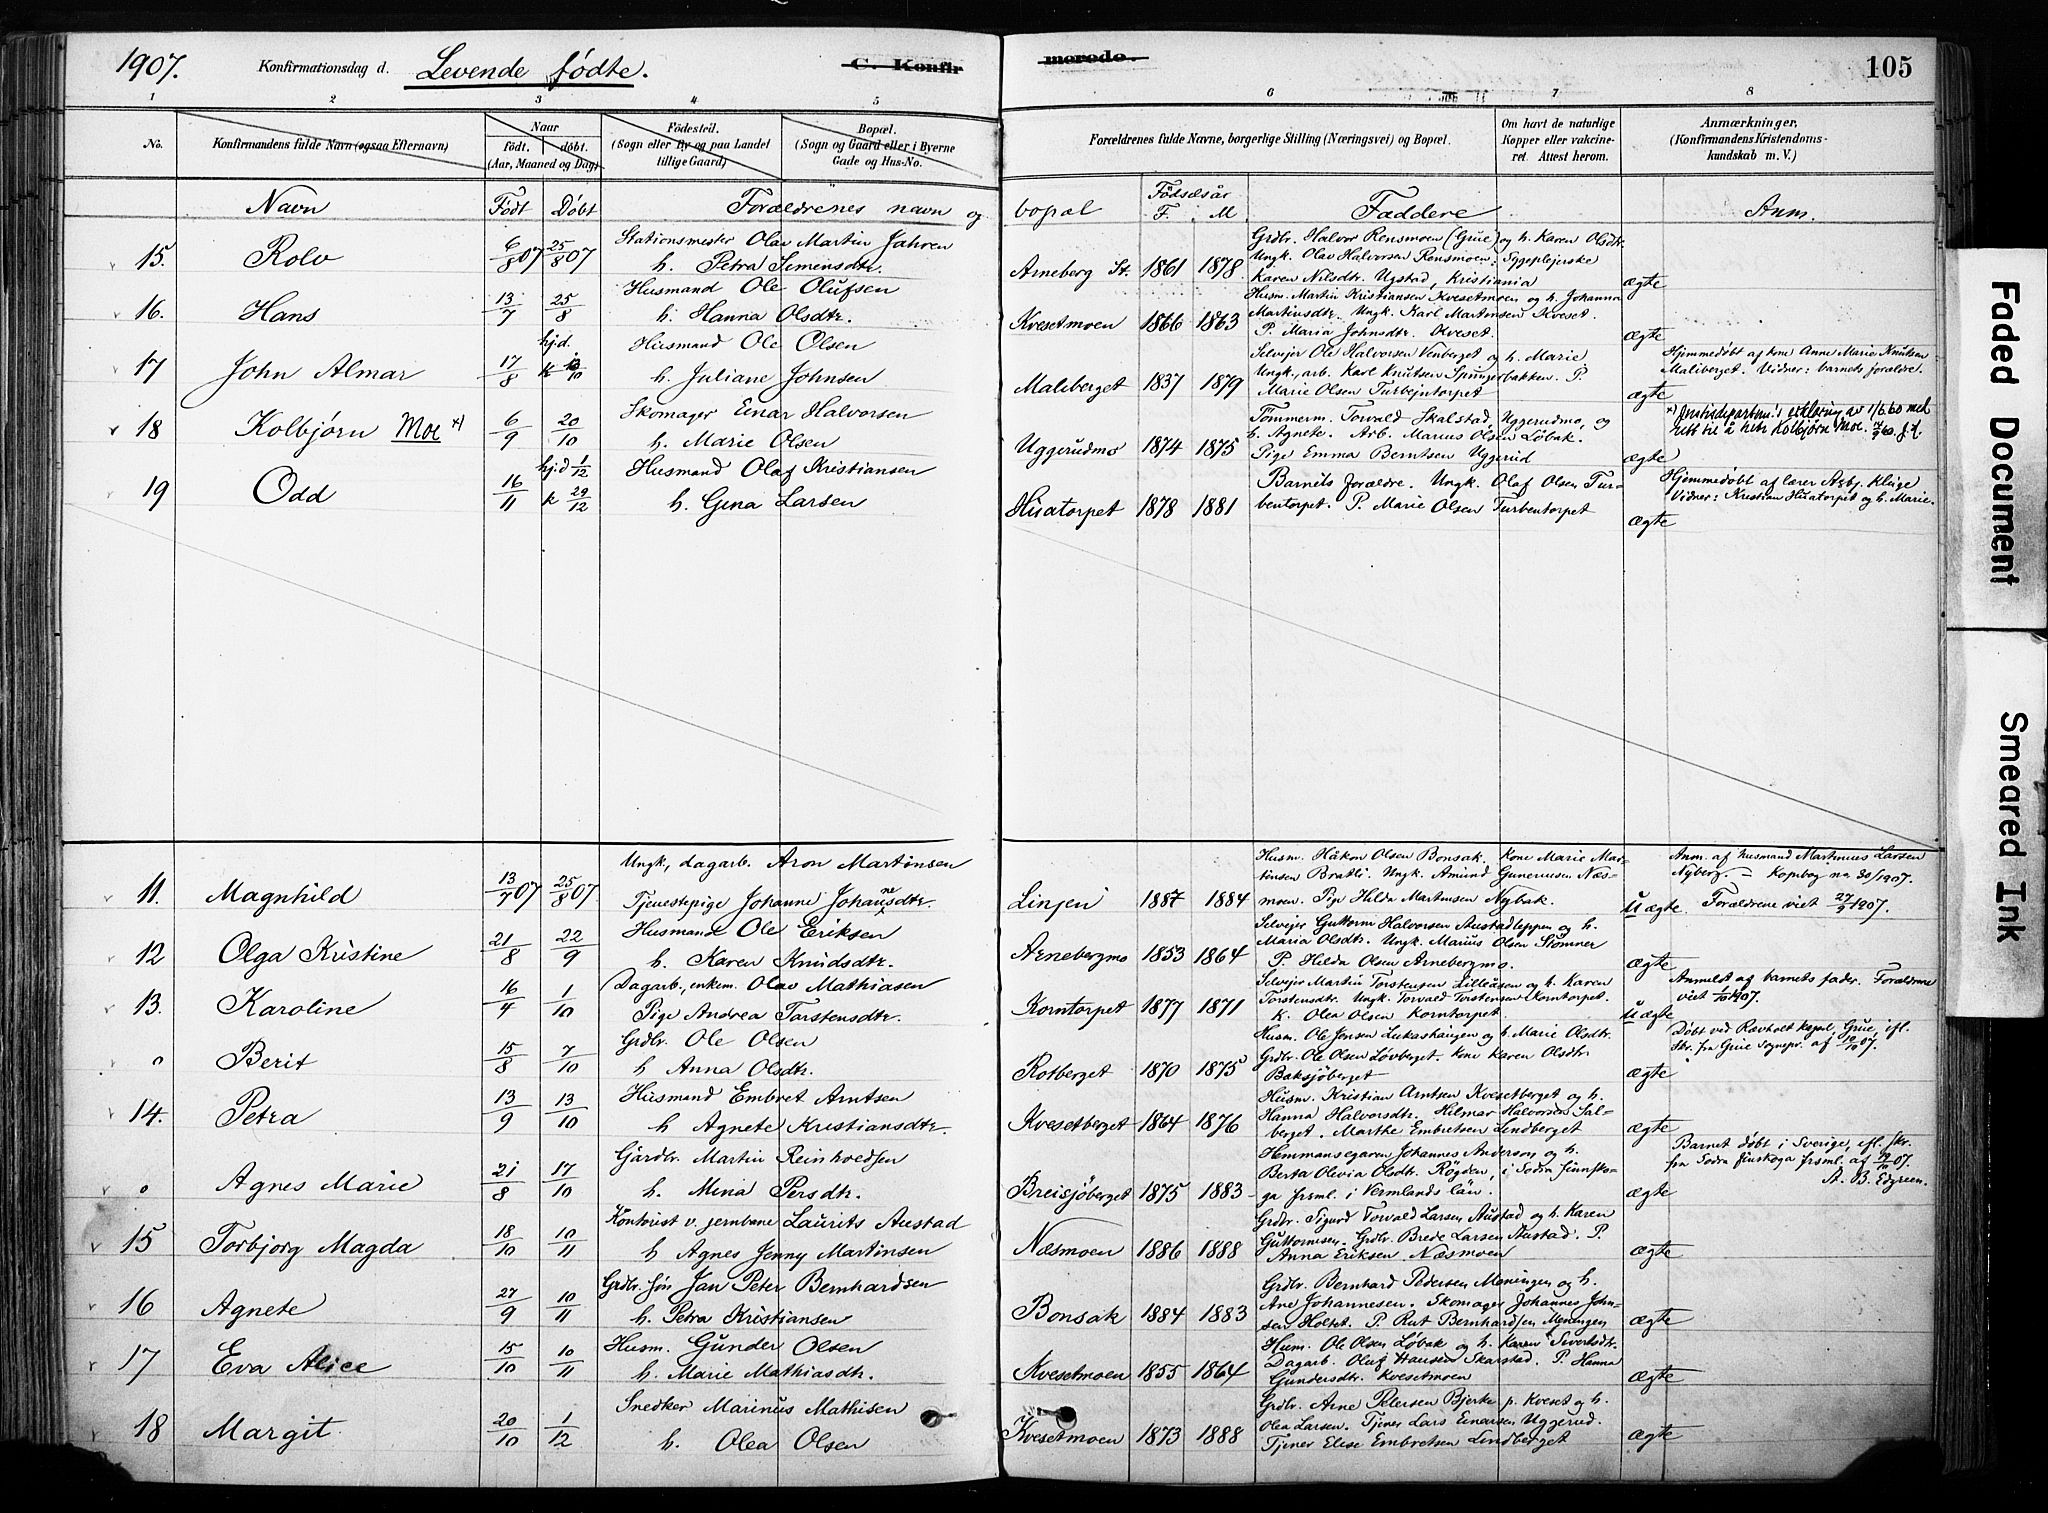 1907. Konfirmationsdag d. Levende fødte. C. Konfir merede. 105
1 2 3 4 5 6 7 8
No. Konfirmandens fulde Navn (ogsaa Efternavn)
Naar
født. døbt.
(Aar, Maaned og Dag)
Fødested.
(Sogn eller By og paa Landet
tillige Gaard)
Bopæl.
(Sogn og Gaard eller i Byerne
Gade og Hus-No.
Forældrenes fulde Navne, borgerlige Stilling (Næringsvei) og Bopæl.
Om havt de naturlige
Kopper eller vakcine-
ret. Attest herom.
Anmærkninger.
(Konfirmandens Kristendoms-
kundskab m. V.)
Navn Født Døbt Forældrenes navn og bopæl Fødselsår F. M Faddere Anm.
15. Rolv 6/8 07 25/8 07
Stationsmester Olav Martin Jahren
h. Petra Simensdtr.
Arneberg St. 1861 1878
Grdbr. Halvor Rensmoen (Grue) og h. Karen Olsdtr.
Ungk. Olav Halvorsen Rensmoen. Sygeplejerske
Karen Nilsdtr. Ugstad, Kristiania
ægte
16. Hans 13/7 25/8
Husmand Ole Olufsen
h. Hanna Olsdtr.
Kvesetmoen 1866 1863
Husm. Martin Kristiansen Kvesetmoen og h. Johanna
Martinsdtr. Ungk. Karl Martinsen Kveset.
P. Maria Johnsdtr. Kveset.
ægte
17 John Almar 17/8 hj.d. k 13/10
Husmand Ole Olsen
h. Juliane Johnsen
Maliberget 1837 1879
Selvejer Ole Halvorsen Venberget og h. Marie
Ungk., arb. Karl Knutsen Spungerbakken. P.
Marie Olsen Turbejntorpet
ægte
Hjemmedøbt af kone Anne Marie Knutsen
Maliberget. Vidner: barnets forældre.
18 Kolbjørn Moe x) 6/9 20/10
Skomager Einar Halvorsen
h. Marie Olsen
Uggerudmo 1874 1875
Tømmerm. Torvald Skalstad, Uggerudmo, og
h. Agnete. Arb. Marius Olsen Løbak.
Pige Emma Berntsen Uggerud
ægte
x) Justisdepartem.'s erklæring av 1/6.60 med
rett til å hete Kolbjørn Moe.
19 Odd 16/11 hj.d 1/12 k 29/12
Husmand Olaf Kristiansen
h. Gina Larsen
Huatorpet 1878 1881
Barnets forældre. Ungk. Olaf Olsen Tur-
bentorpet. P. Marie Olsen Turbentorpet
ægte
Hjemmedøbt af lærer Asbj. Kluge
Vidner: Kristian Huatorpet og h. Marie.
11. Magnhild 13/7 07 25/8 07
Ungk., dagarb. Aron Martinsen
Tjenestepige Johanne Johannesdtr.
Linjen 1887 1884
Husm. Håkon Olsen Bonsak. Kone Marie Mar-
tinsen Bratli. Ungk. Amund Gunerusen Næs-
moen. Pige Hilda Martinsen Nybak.
uægte.
Anm. af husmand Martinus Larsen
Nyberg. = Kopibog no 30/1907.
Forældrene viet 27/9 1907.
12 Olga Kristine 21/8 22/9
Husmand Ole Eriksen
h. Karen Knudsdtr.
Arnebergmo 1853 1864
Selvejer Guttorm Halvorsen Austadleppen og h.
Maria Olsdtr. Ungk. Marius Olsen Stømner
P. Hilda Olsen Arnebergmo.
ægte
13. Karoline 16/4 1/10
Dagarb., enkem. Olav Mathiasen
Pige Andrea Torstensdtr.
Korntorpet 1877 1871
Selvejer Martin Torstensen Lilleåsen og h. Karen
Torstensdtr. Ungk. Torvald Torstensen Korntorpet.
K. Olea Olsen Korntorpet.
uægte
Anmeldt af barnets fader. Forældrene
viet 1/10 1907.
o Berit 15/8 7/10
Grdbr. Ole Olsen
h Anna Olsdtr.
Rotberget 1870 1875
Husm. Ole Jensen Lukashaugen og h. Marie Olsdtr.
Grdbr. Ole Olsen Løvberget. Kone Karen Olsdtr.
Baksjøberget
ægte
Døbt ved Rævholt kapel, Grue, ifl.
Skr. fra Grue Sognepr. af 10/10 07.
14. Petra 13/9 13/10
Husmand Embret Arntsen
h Agnete Kristiansdtr.
Kvesetberget 1864 1876
Husm. Kristian Arntsen Kvesetberget og h.
Hanna Halvorsdtr. Hilmar Halvorsen Sal-
berget. Marthe Embretsen Lindberget
ægte
o Agnes Marie 21/8 17/10
Gårdbr. Martin Reinholdsen
h. Mina Persdtr.
Breisjøberget 1875 1883
Hemmansegaren Johannes Anderson og h.
Berta Olivia Olsdtr. Rögden, i Södra Finnsko-
ga frsml. i Vermlands län.
ægte
Barnet døbt i Sverige, ifl. skr.
fra Södra Finskoga frsml. af 07.
A. B. Edgreen.
15 Torbjørg Magda 18/10 10/11
Kontorist v. jernbane Laurits Austad
h Agnes Jenny Martinsen
Næsmoen 1886 1888
Grdbr. Sigurd Torvald Larsen Austad og h. Karen
Guttormsen. Grdbr. Brede Larsen Austad. P.
Anna Eriksen Næsmoen
ægte
16 Agnete 27/9 10/11
Grdbr. søn Jan Peter Bernhardsen
h. Petra Kristiansen
Bonsak 1884 1883
Grdbr. Bernhard Pedersen Meningen og h.
Ane Johannesen. Skomager Johannes John-
sen Holtet. P. Rut Bernhardsen Meningen
ægte
17 Eva Alice 15/10 10/11
Husm. Gunder Olsen
h. Marie Mathiasdtr.
Kvesetmoen 1855 1864
Husm. Ole Olsen Løbak og h. Karen Sivertsdtr.
Dagarb. Oluf Hansen Skarstad. P. Hanna
Gundersdtr. Kvesetmoen
ægte
18 Margit 20/10 1/12
Snedker Marinus Mathisen
h. Olea Olsen
Kvesetmoen 1873 1888
Grdbr. Arne Petersen Bjerke p. Kveset og h.
Olea Larsen. Tjener Lars Einarsen Uggerud.
Tjener Elise Embretsen Lindberget
ægte
Faded Document
Smeared Ink